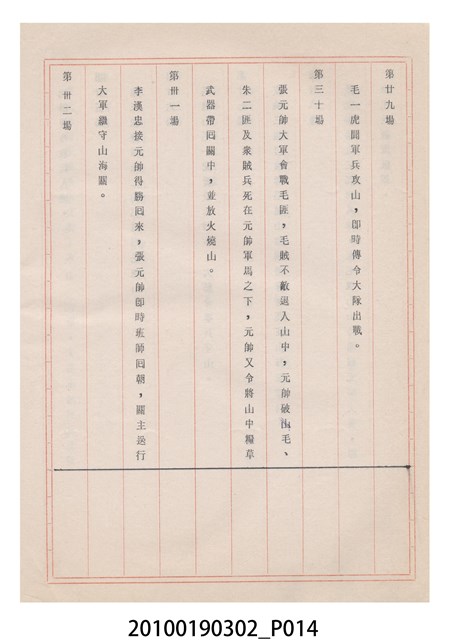 第廿九場
毛一虎聞軍兵攻山，卽時傳令大隊出戰。
第三十場
張元帥大軍會戰毛匪，毛賊不敵退入山中，元帥破山毛、
朱二匪及衆賊兵死在元帥軍馬之下，元帥又令將山中糧草
武器帶囘關中，並放火燒山。
第卅一場
李漢忠接元帥得勝囘來，張元帥卽時班師囘朝，關主送行
大軍繼守山海關。
第卅二場
20100190302_P014